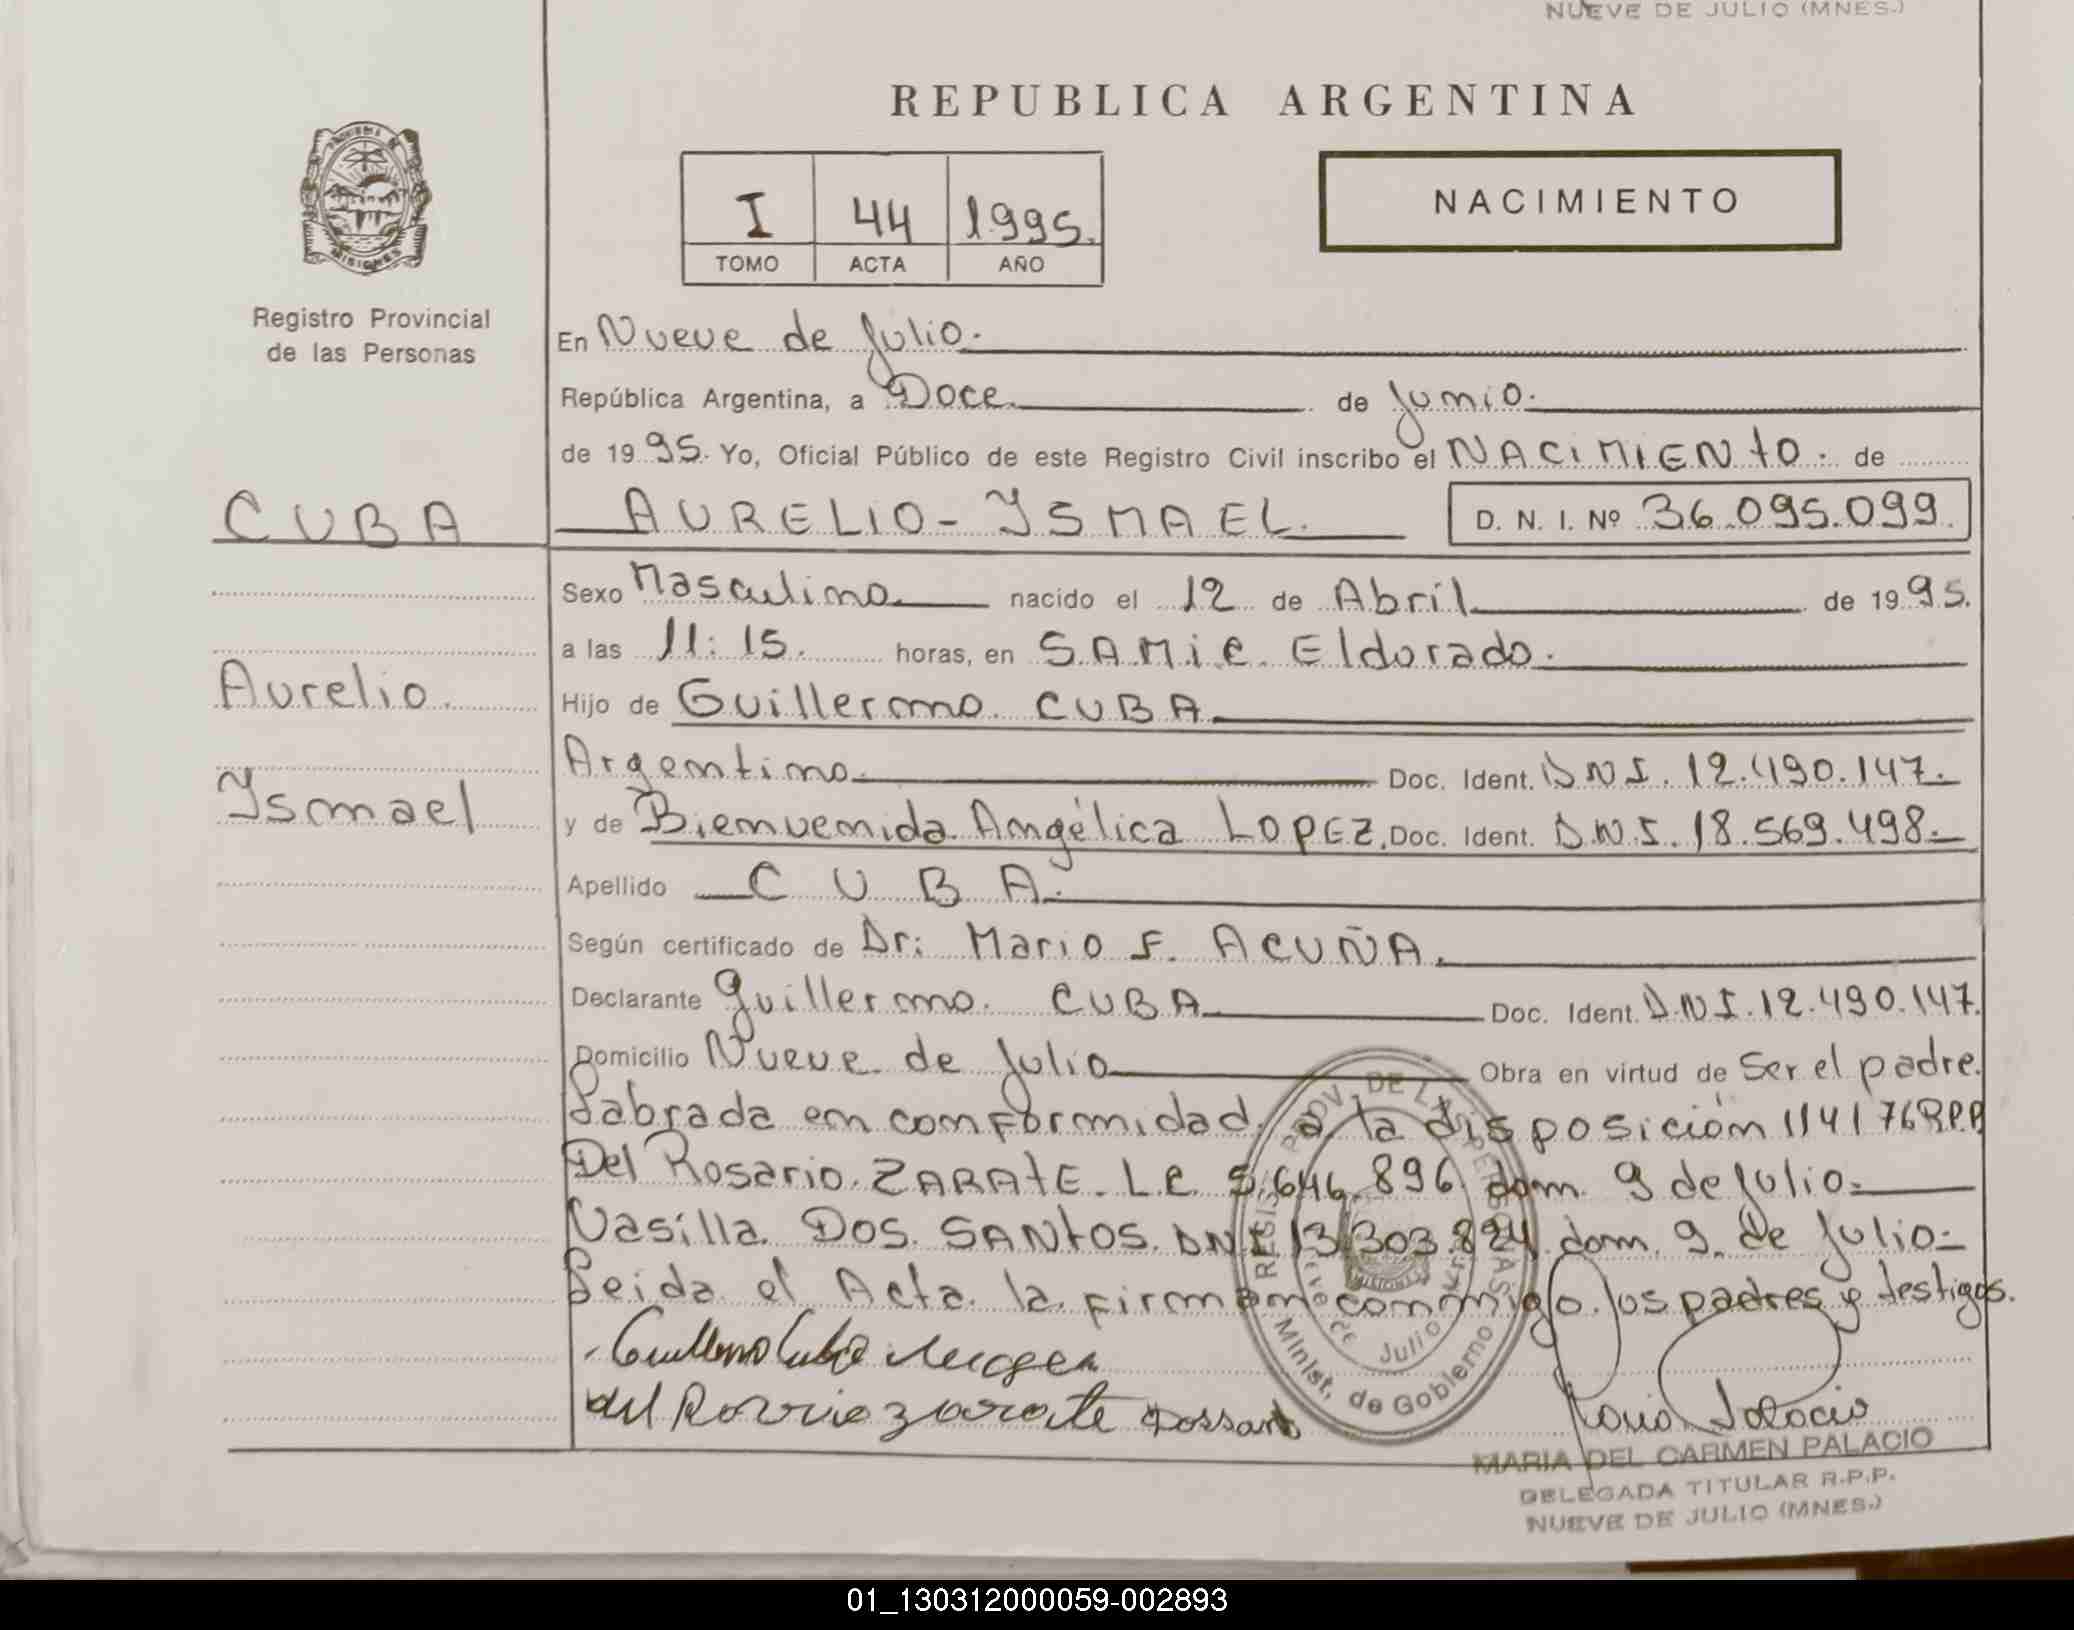 NUEVE DE JULIO (MNES.)
REPUBLICA ARGENTINA
PROVINCIA DE
MISIONES
Registro Provincial
de las Personas
I 44 1995.
TOMO ACTA AÑO
NACIMIENTO
En Nueve de Julio.
República Argentina, a Doce de Junio.
de 1995. Yo, Oficial Público de este Registro Civil inscribo el NACIMIENTO. de
CUBA AURELIO-YSMAEL. D. N. I. Nº 36.095.099.
Sexo Masculino nacido el 12 de Abril de 1995.
a las 11:15. horas, en S.A.M.i.c. Eldorado.
Aurelio. Hijo de Guillermo CUBA
Argentino. Doc. Ident. D.N.I. 12.490.147.
Ysmael y de Bienvenida Angélica LOPEZ. Doc. Ident. D.N.I. 18.569.498.
Apellido CUBA.
Según certificado de Dr: Mario F. ACUÑA.
Declarante Guillermo. CUBA Doc. Ident. D.N.I. 12.490.147.
Domicilio Nueve de Julio Obra en virtud de Ser el padre.
Labrada en conformidad a la disposición 114/76 R.P.P
Del Rosario ZARATE. L.C. 5.646.896. dom. 9 de Julio.
Vasilla DOS SANTOS. DNI 13.303.824. dom. 9. de Julio.
Leida el Acta la firman conmigo los padres y testigos.
Guillermo Cuba
del Rosario zarate Dossant
Maria Palacio
REGIS. PROV. DE LAS PERSONAS
Nueve de Julio
Minist. de Gobierno
MARIA DEL CARMEN PALACIO
DELEGADA TITULAR R.P.P.
NUEVE DE JULIO (MNES.)
01_130312000059-002893